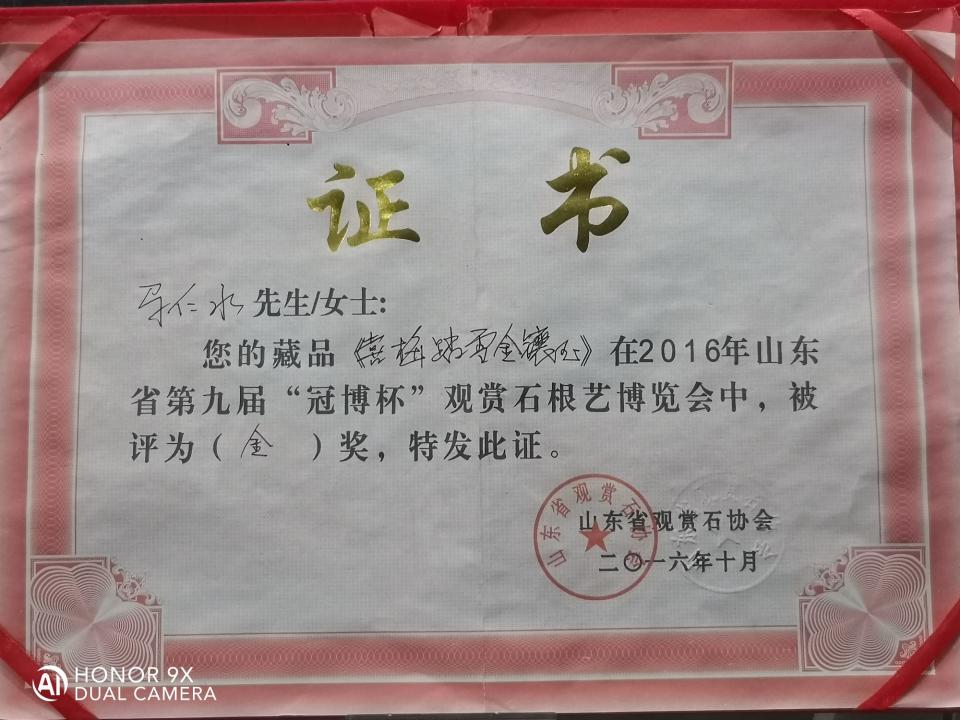 证书
仁水先生/女士:
您的藏品《喜梅踏雪金镶玉》在2016年山东
省第九届“冠博杯”观赏石根艺博览会中，被
评为（金）奖，特发此证。
山东省观赏石协会
山东省观赏石协会
二〇一六年十月
HONOR 9X
AI DUAL CAMERA